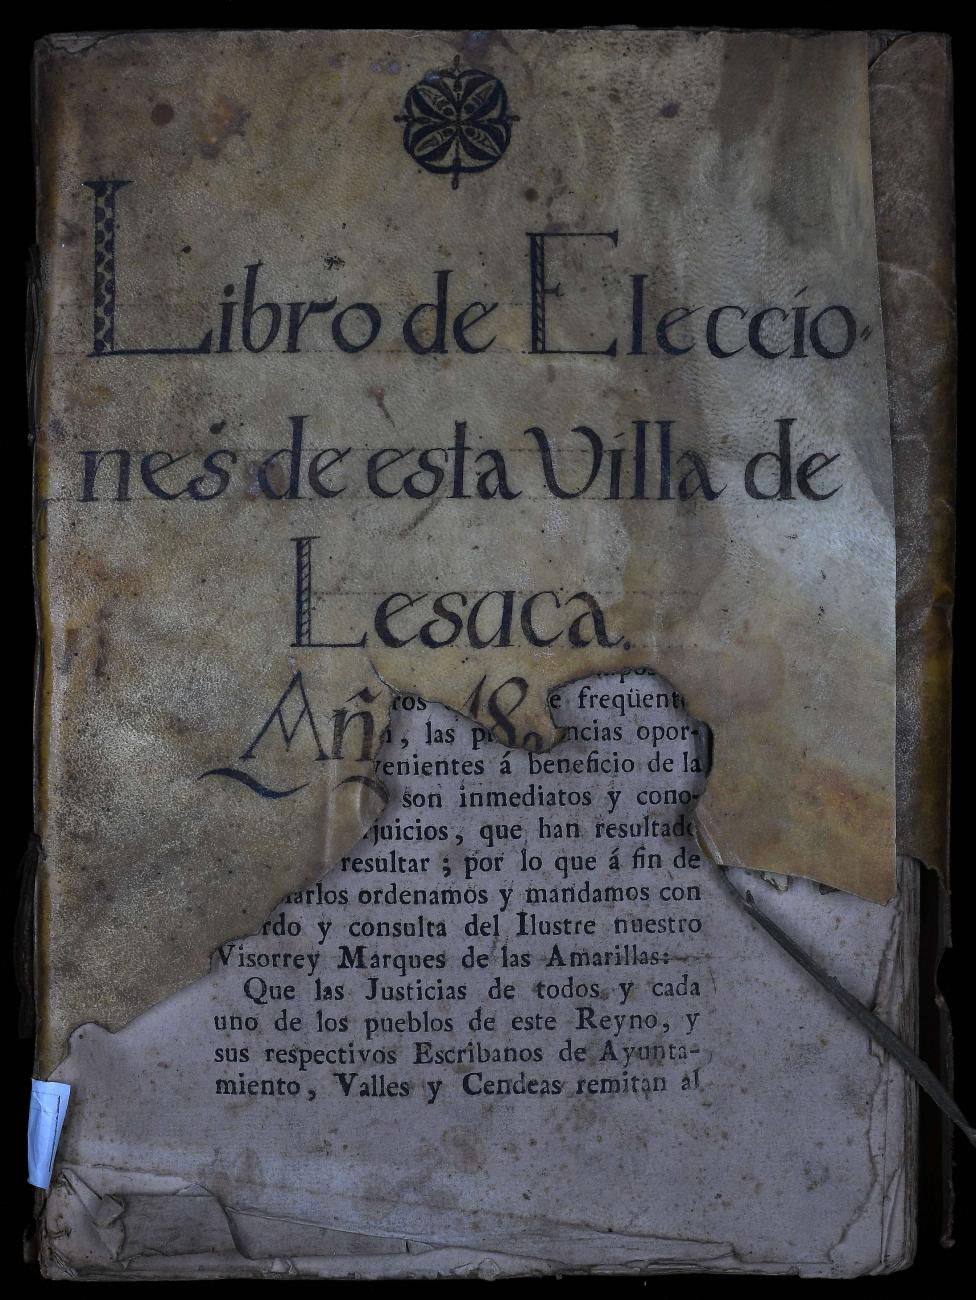 Libro de Eleccio-
nes de esta Villa de
Lesaca.
Añ 18
ros e freqüent
, las pr ncias opor-
venientes á beneficio de la
son inmediatos y cono-
juicios, que han resultado
resultar ; por lo que á fin de
arlos ordenamos y mandamos con
rdo y consulta del Ilustre nuestro
Visorrey Marques de las Amarillas:
Que las Justicias de todos y cada
uno de los pueblos de este Reyno, y
sus respectivos Escribanos de Ayunta-
miento, Valles y Cendeas remitan al